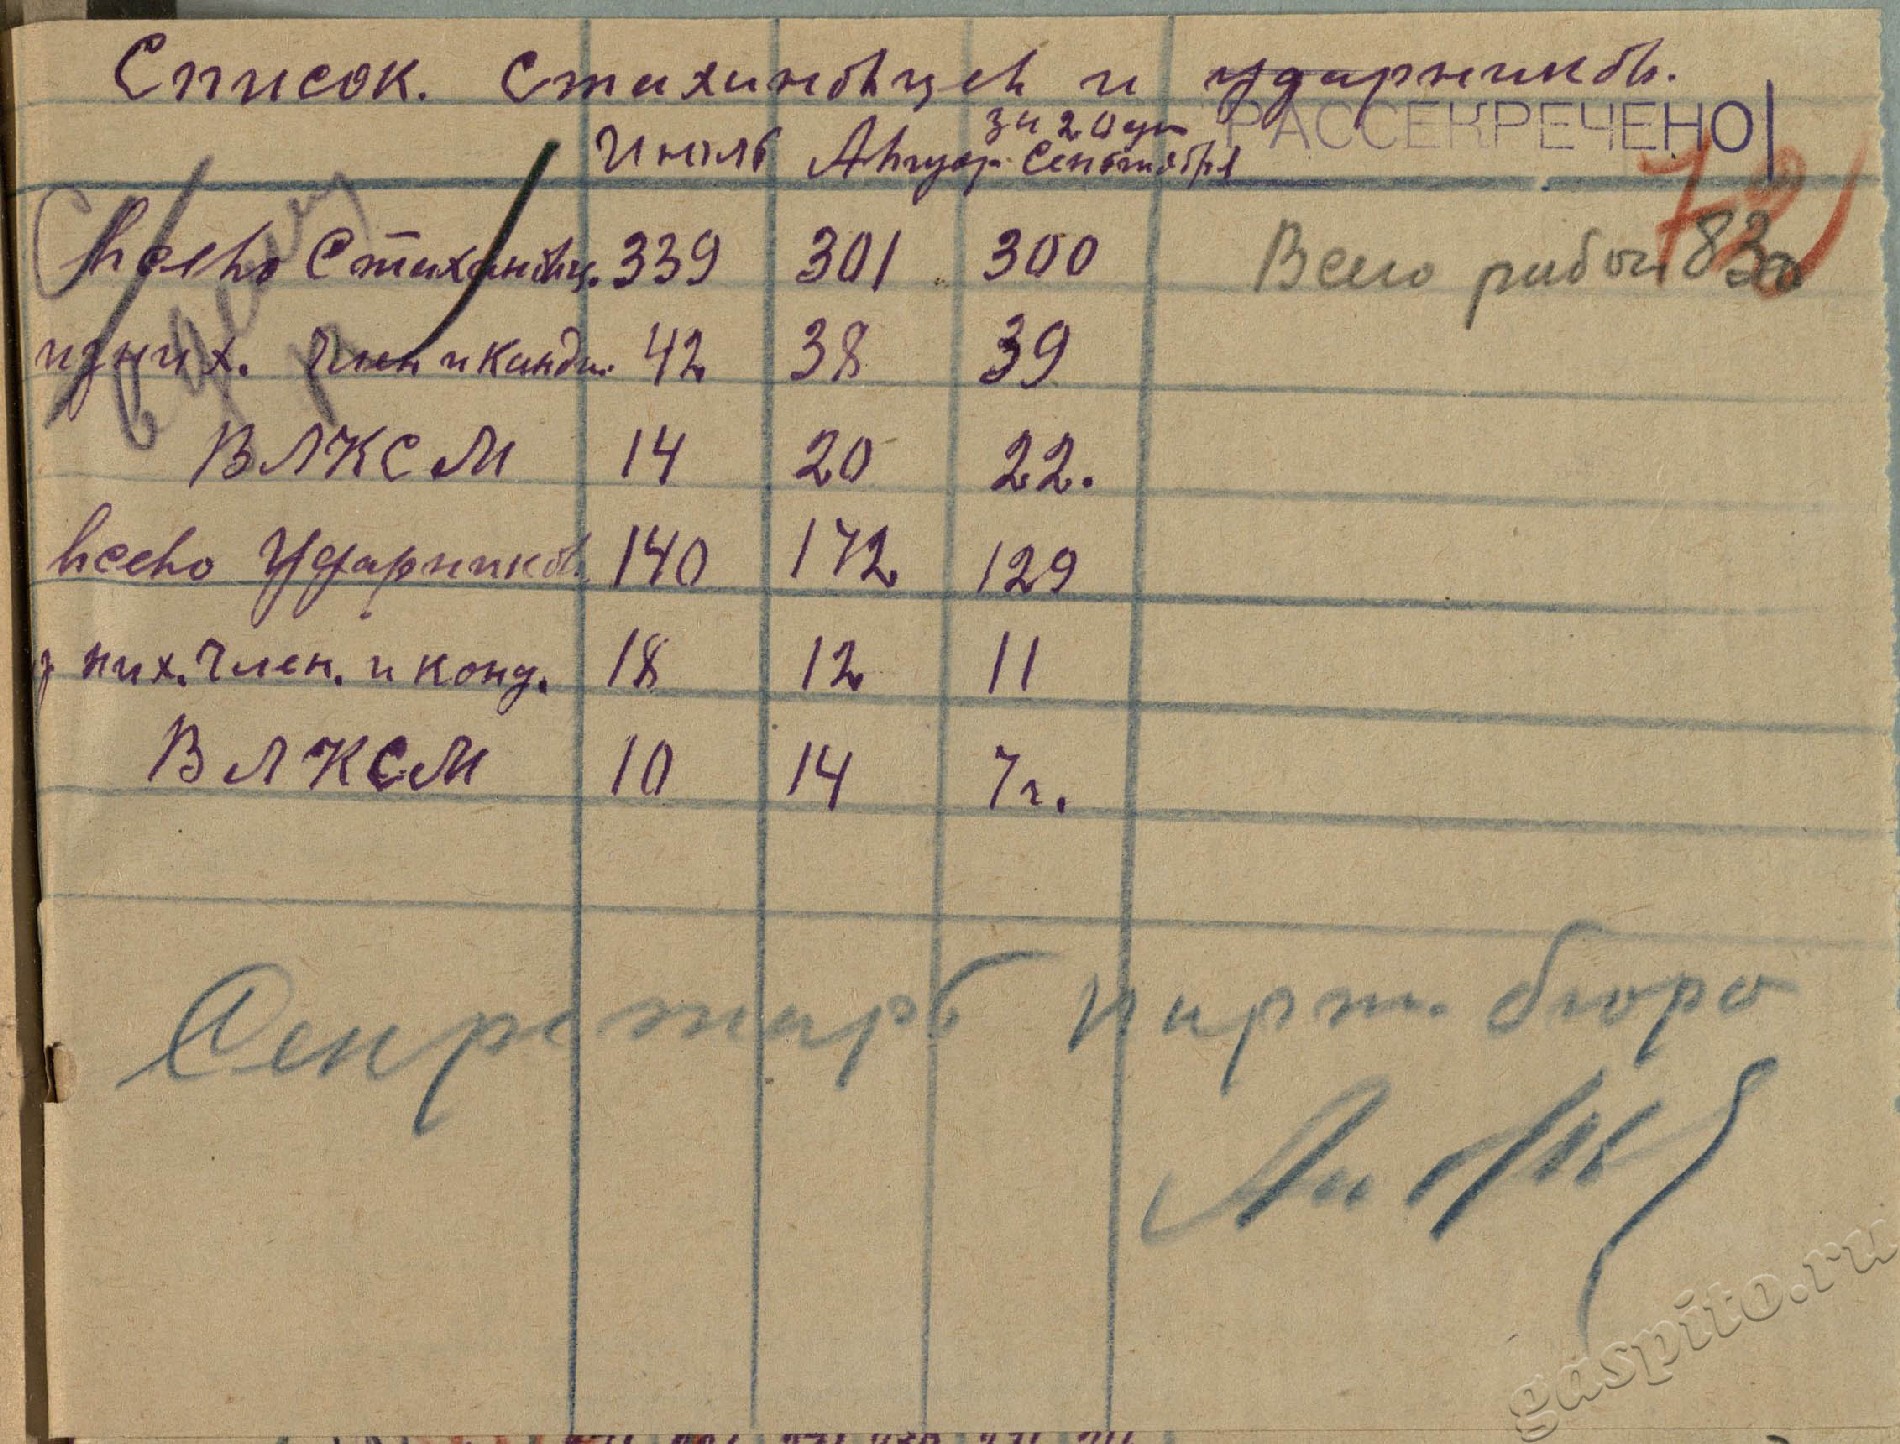 Список. Стахиновцев и ударников.
РАССЕКРЕЧЕНО
Июль Август за 20 дн Сентября
Всего Стахановц. 339 301 300 Всего рабоч 830
из них. Член и канди. 42 38 39
ВЛКСМ 14 20 22.
всего Ударников 140 172 129
из них. Член. и конд. 18 12 11
ВЛКСМ 10 14 7 г.
Секретарь парт. бюро
gaspito.ru